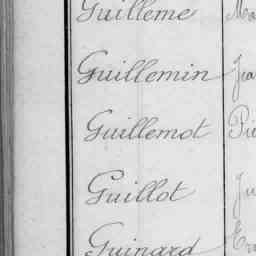 Guilleme
Guillemin
Guillemot
Guillot
Guinard